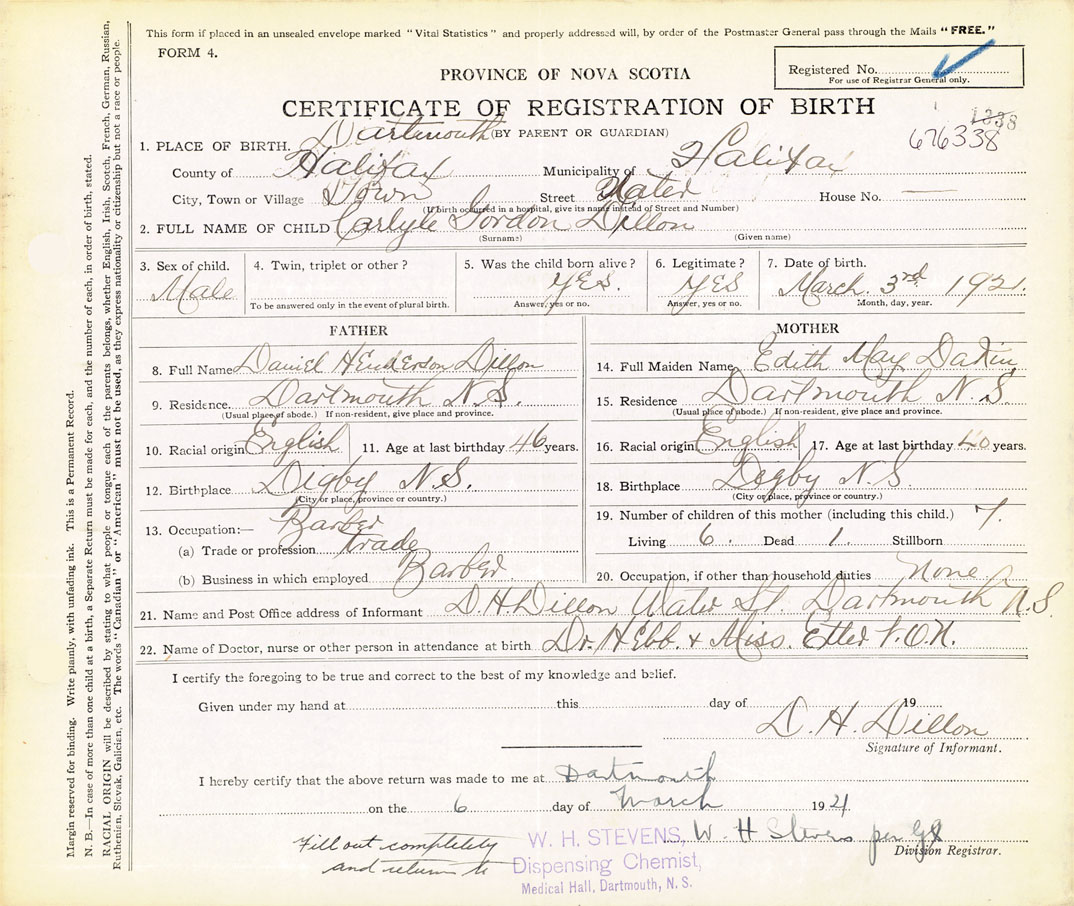 This form if placed in an unsealed envelope marked "Vital Statistics" and properly addressed will, by order of the Postmaster General pass through the Mails "FREE."
FORM 4.
Registered No.
For use of Registrar General only.
PROVINCE OF NOVA SCOTIA
CERTIFICATE OF REGISTRATION OF BIRTH
(BY PARENT OR GUARDIAN)
1338
676338
1. PLACE OF BIRTH. Dartmouth
County of Halifax Municipality of Halifax
City, Town or Village Town Street Water House No.
(If birth occurred in a hospital, give its name instead of Street and Number)
2. FULL NAME OF CHILD Carlyle Gordon Dillon
(Surname) (Given name)
3. Sex of child. Male
4. Twin, triplet or other?
To be answered only in the event of plural birth.
5. Was the child born alive? YES.
Answer, yes or no.
6. Legitimate? YES
Answer, yes or no.
7. Date of birth. March 3rd 1921.
Month, day, year.
FATHER
8. Full Name Daniel Henderson Dillon
9. Residence. Dartmouth N.S.
(Usual place of abode.) If non-resident, give place and province.
10. Racial origin English 11. Age at last birthday 46 years.
12. Birthplace Digby N.S.
(City or place, province or country.)
13. Occupation:— Barber
(a) Trade or profession trade
(b) Business in which employed Barber.
MOTHER
14. Full Maiden Name Edith May Dakin
15. Residence Dartmouth N.S.
(Usual place of abode.) If non-resident, give place and province.
16. Racial origin English 17. Age at last birthday 40 years.
18. Birthplace Digby N.S.
(City or place, province or country.)
19. Number of children of this mother (including this child.) 7.
Living 6. Dead 1. Stillborn
20. Occupation, if other than household duties None
21. Name and Post Office address of Informant D.H. Dillon Water St. Dartmouth N.S.
22. Name of Doctor, nurse or other person in attendance at birth Dr. Hebb. & Miss. Etter V.O.N.
I certify the foregoing to be true and correct to the best of my knowledge and belief.
Given under my hand at this day of 19
D. H. Dillon
Signature of Informant.
I hereby certify that the above return was made to me at Dartmouth
on the 6 day of March 1921
W H Stevens per
Division Registrar.
Fill out completely
and return to
W. H. STEVENS,
Dispensing Chemist,
Medical Hall, Dartmouth, N. S.
Margin reserved for binding. Write plainly, with unfading ink. This is a Permanent Record.
N. B.—In case of more than one child at a birth, a Separate Return must be made for each, and the number of each, in order of birth, stated.
RACIAL ORIGIN will be described by stating to what people or tongue each of the parents belongs, whether English, Irish, Scotch, French, German, Russian,
Ruthenian, Slovak, Galician, etc. The words "Canadian" or "American" must not be used, as they express nationality or citizenship but not a race or people.